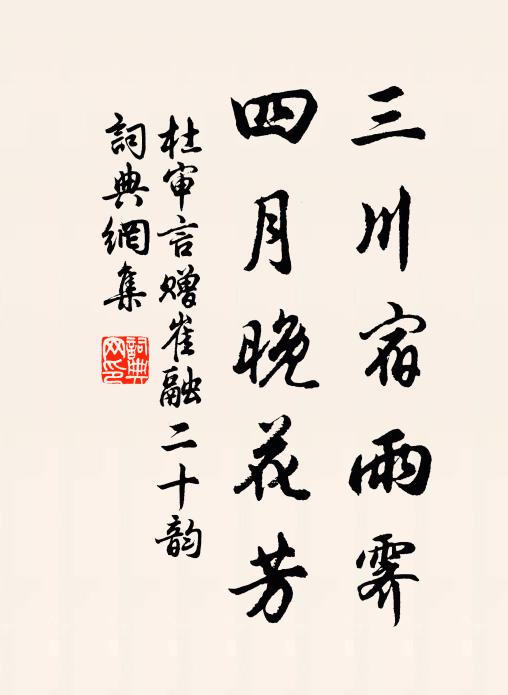 三川宿雨霁
四月晚花芳
杜审言赠崔融二十韵
詞典網集
詞典网印